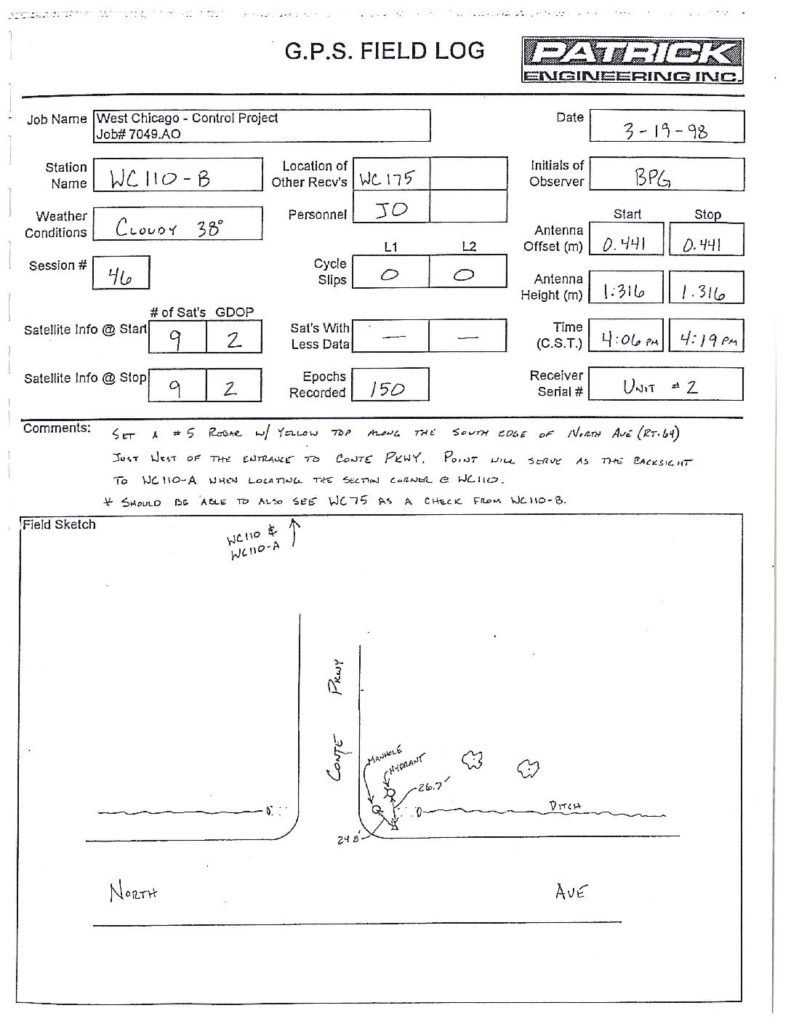 G.P.S. FIELD LOG
PATRICK
ENGINEERING INC.
Job Name West Chicago - Control Project
Job# 7049.AO
Date 3-19-98
Station Name WC110-B
Location of Other Recv's WC175
Initials of Observer BPG
Personnel JO
Weather Conditions CLOUDY 38°
Start Stop
Antenna Offset (m) 0.441 0.441
L1 L2
Session # 46
Cycle Slips 0 0
Antenna Height (m) 1.316 1.316
# of Sat's GDOP
Satellite Info @ Start 9 2
Sat's With Less Data — —
Time (C.S.T.) 4:06 PM 4:19 PM
Satellite Info @ Stop 9 2
Epochs Recorded 150
Receiver Serial # UNIT #2
Comments: SET A #5 REBAR W/ YELLOW TOP ALONG THE SOUTH EDGE OF NORTH AVE (RT.64)
JUST WEST OF THE ENTRANCE TO CONTE PKWY. POINT WILL SERVE AS THE BACKSIGHT
TO WC110-A WHEN LOCATING THE SECTION CORNER @ WC110.
* SHOULD BE ABLE TO ALSO SEE WC75 AS A CHECK FROM WC110-B.
Field Sketch
WC110 &
WC110-A
CONTE PKWY
MANHOLE
HYDRANT
26.7'
DITCH
24.8'
NORTH AVE